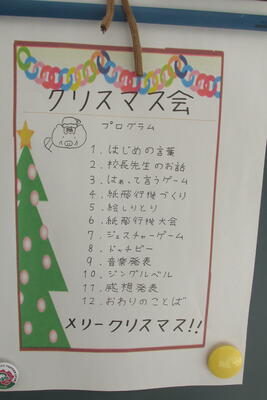 クリスマス会
プログラム
1. はじめの言葉
2. 校長先生のお話
3. はぁって言うゲーム
4. 紙飛行機づくり
5. 絵しりとり
6. 紙飛行機大会
7. ジェスチャーゲーム
8. ドッヂビー
9. 音楽発表
10. ジングルベル
11. 感想発表
12. おわりのことば
メリークリスマス!!